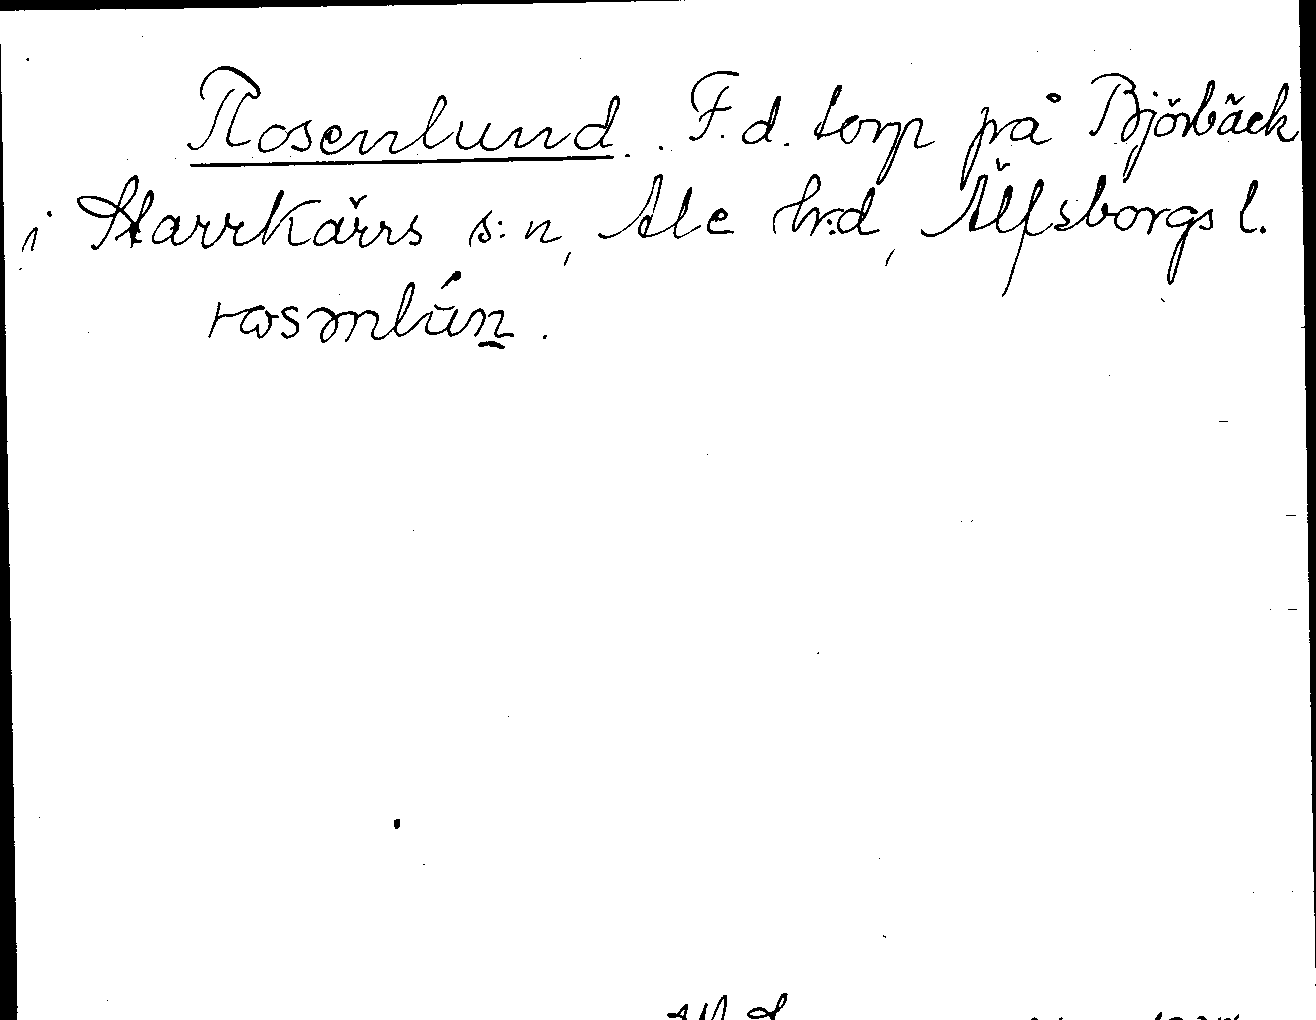 Rosenlund. F.d. torp på Björbäck
i Starrkärrs s:n, Ale hrd, Älfsborgs l.
rosənlún.